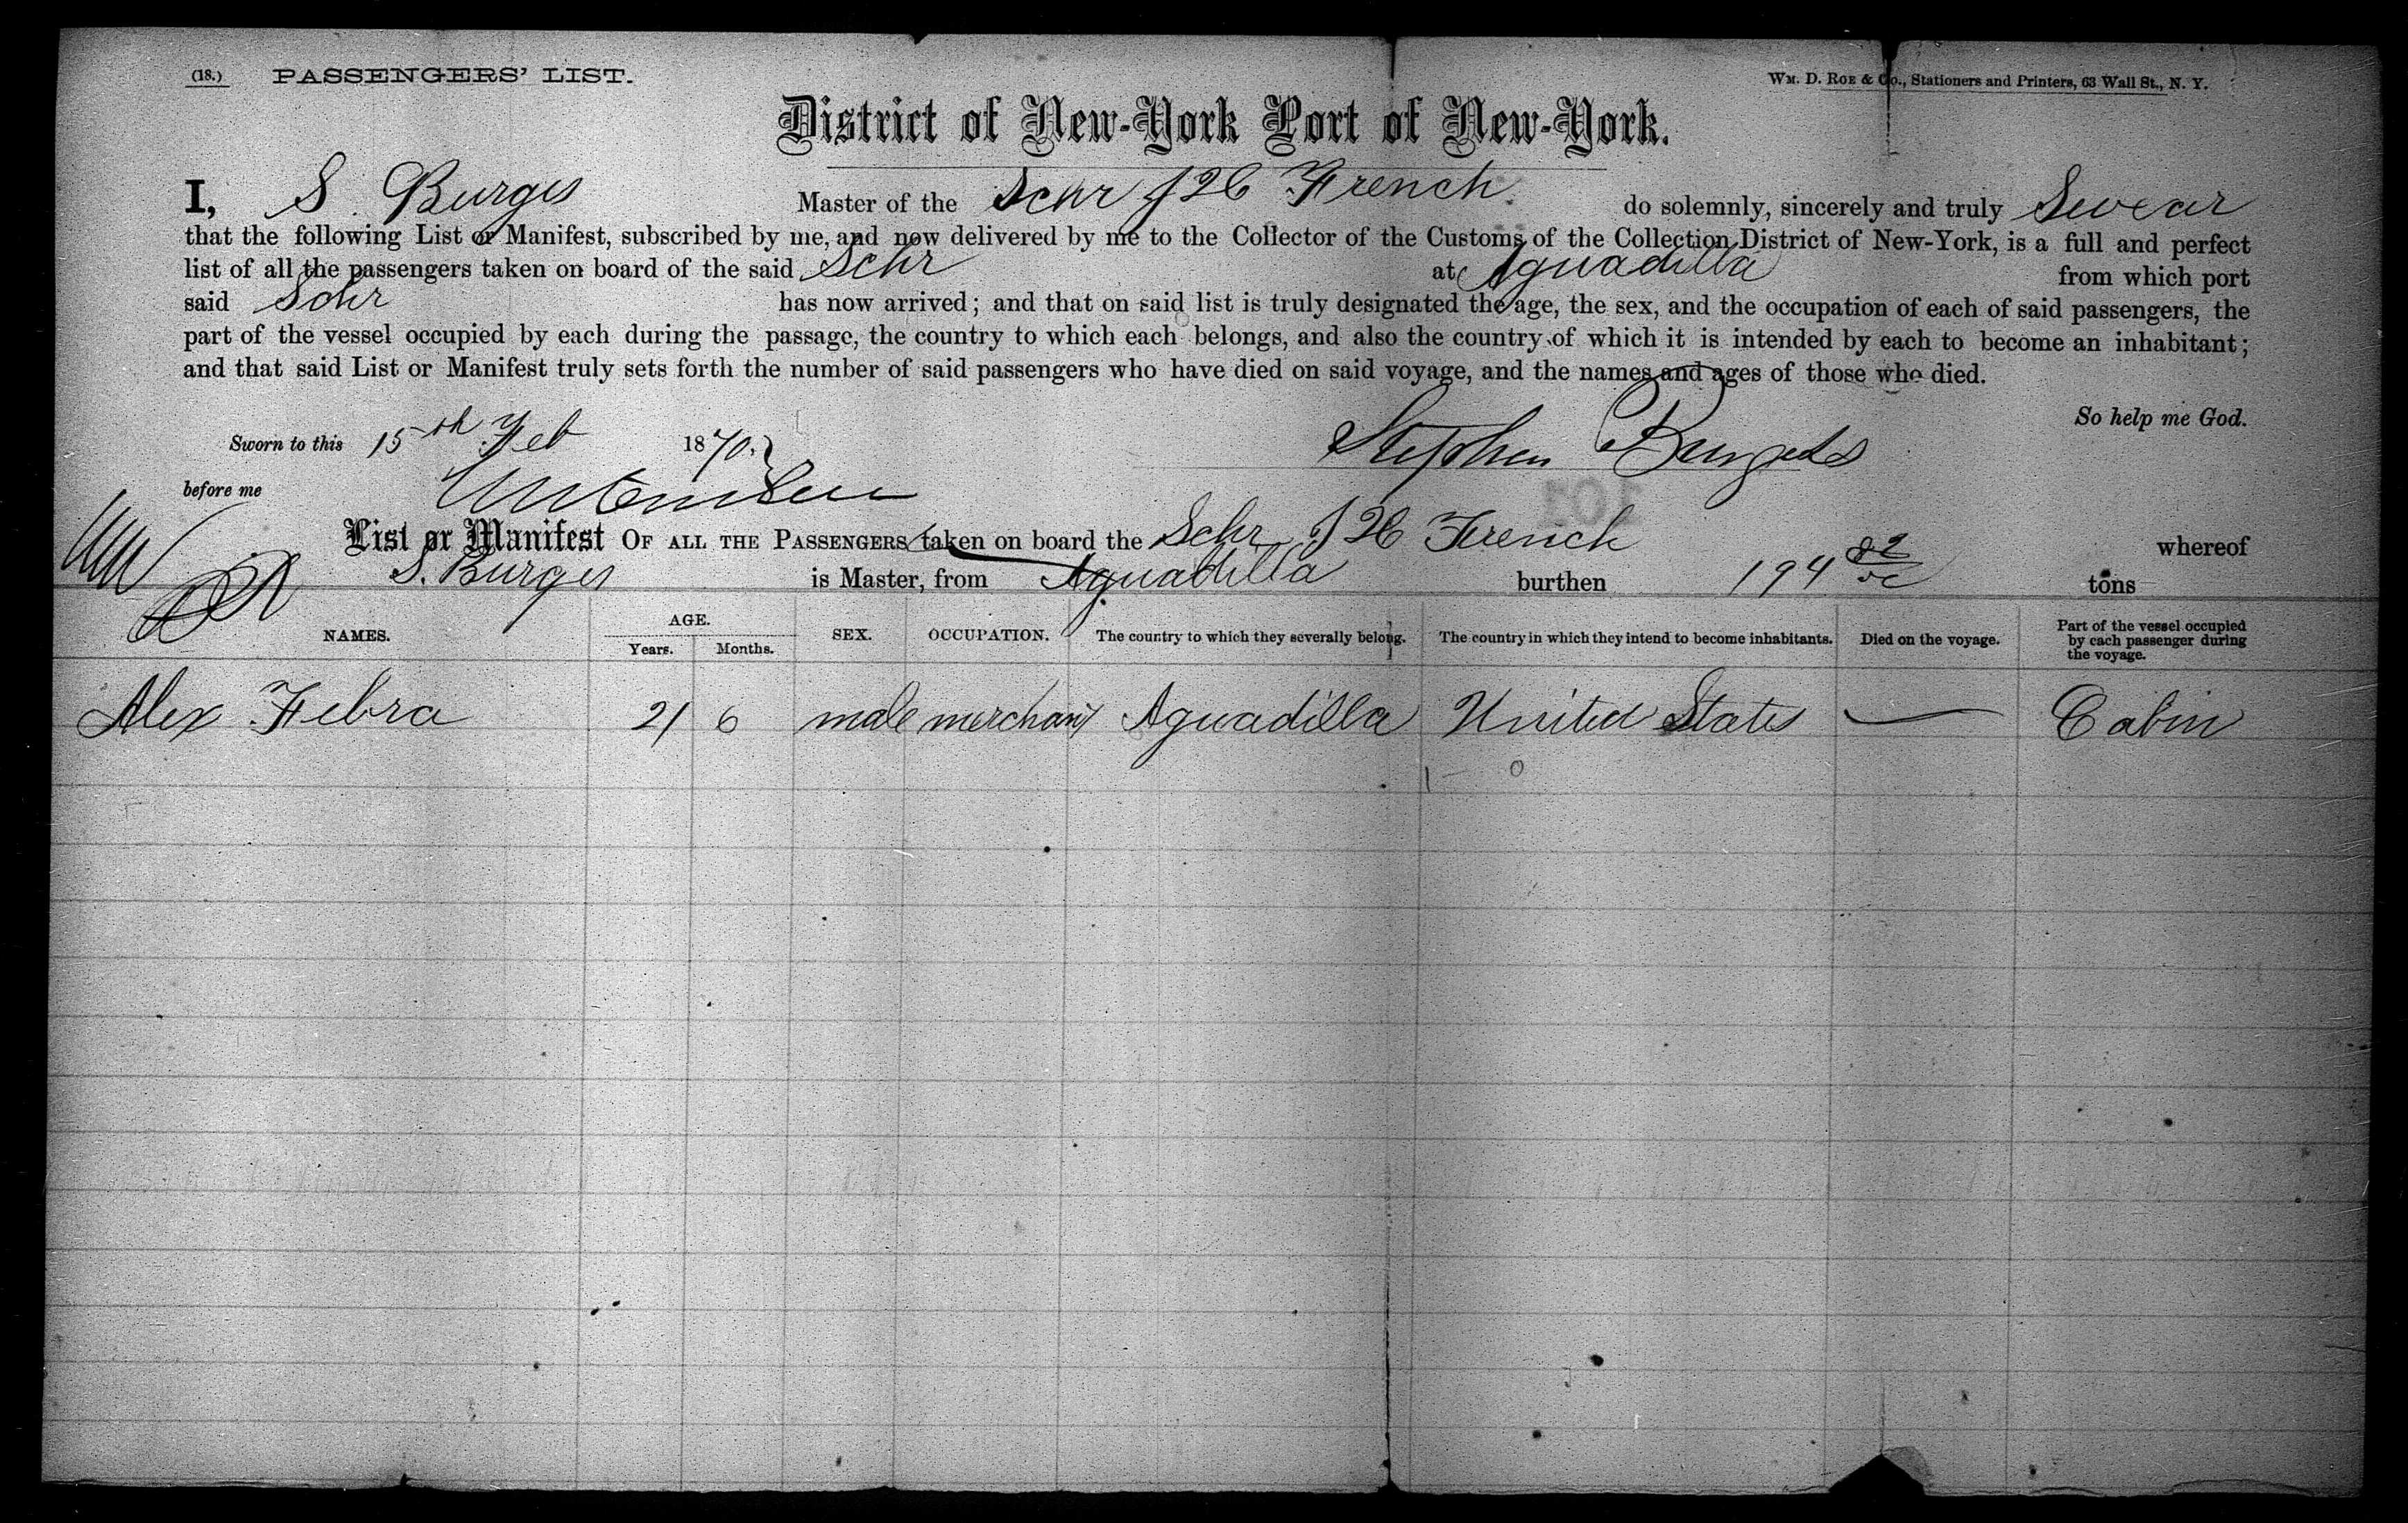 (18.) PASSENGERS' LIST. WM. D. ROE & Co., Stationers and Printers, 63 Wall St., N. Y.
District of New-York Port of New-York.
I, S. Burges Master of the Schr French do solemnly, sincerely and truly Swear
that the following List or Manifest, subscribed by me, and now delivered by me to the Collector of the Customs of the Collection District of New-York, is a full and perfect
list of all the passengers taken on board of the said Schr at Aguadilla from which port
said Schr has now arrived; and that on said list is truly designated the age, the sex, and the occupation of each of said passengers, the
part of the vessel occupied by each during the passage, the country to which each belongs, and also the country of which it is intended by each to become an inhabitant;
and that said List or Manifest truly sets forth the number of said passengers who have died on said voyage, and the names and ages of those who died.
So help me God.
Sworn to this 15th Feb 1870. Stephen Burgess
before me
101
List or Manifest OF ALL THE PASSENGERS taken on board the Schr French whereof
S. Burges is Master, from Aguadilla burthen 194 tons
NAMES. AGE. Years. Months. SEX. OCCUPATION. The country to which they severally belong. The country in which they intend to become inhabitants. Died on the voyage. Part of the vessel occupied by each passenger during the voyage.
Alex Febra 21 6 male merchant Aguadilla United States — Cabin
1 - 0